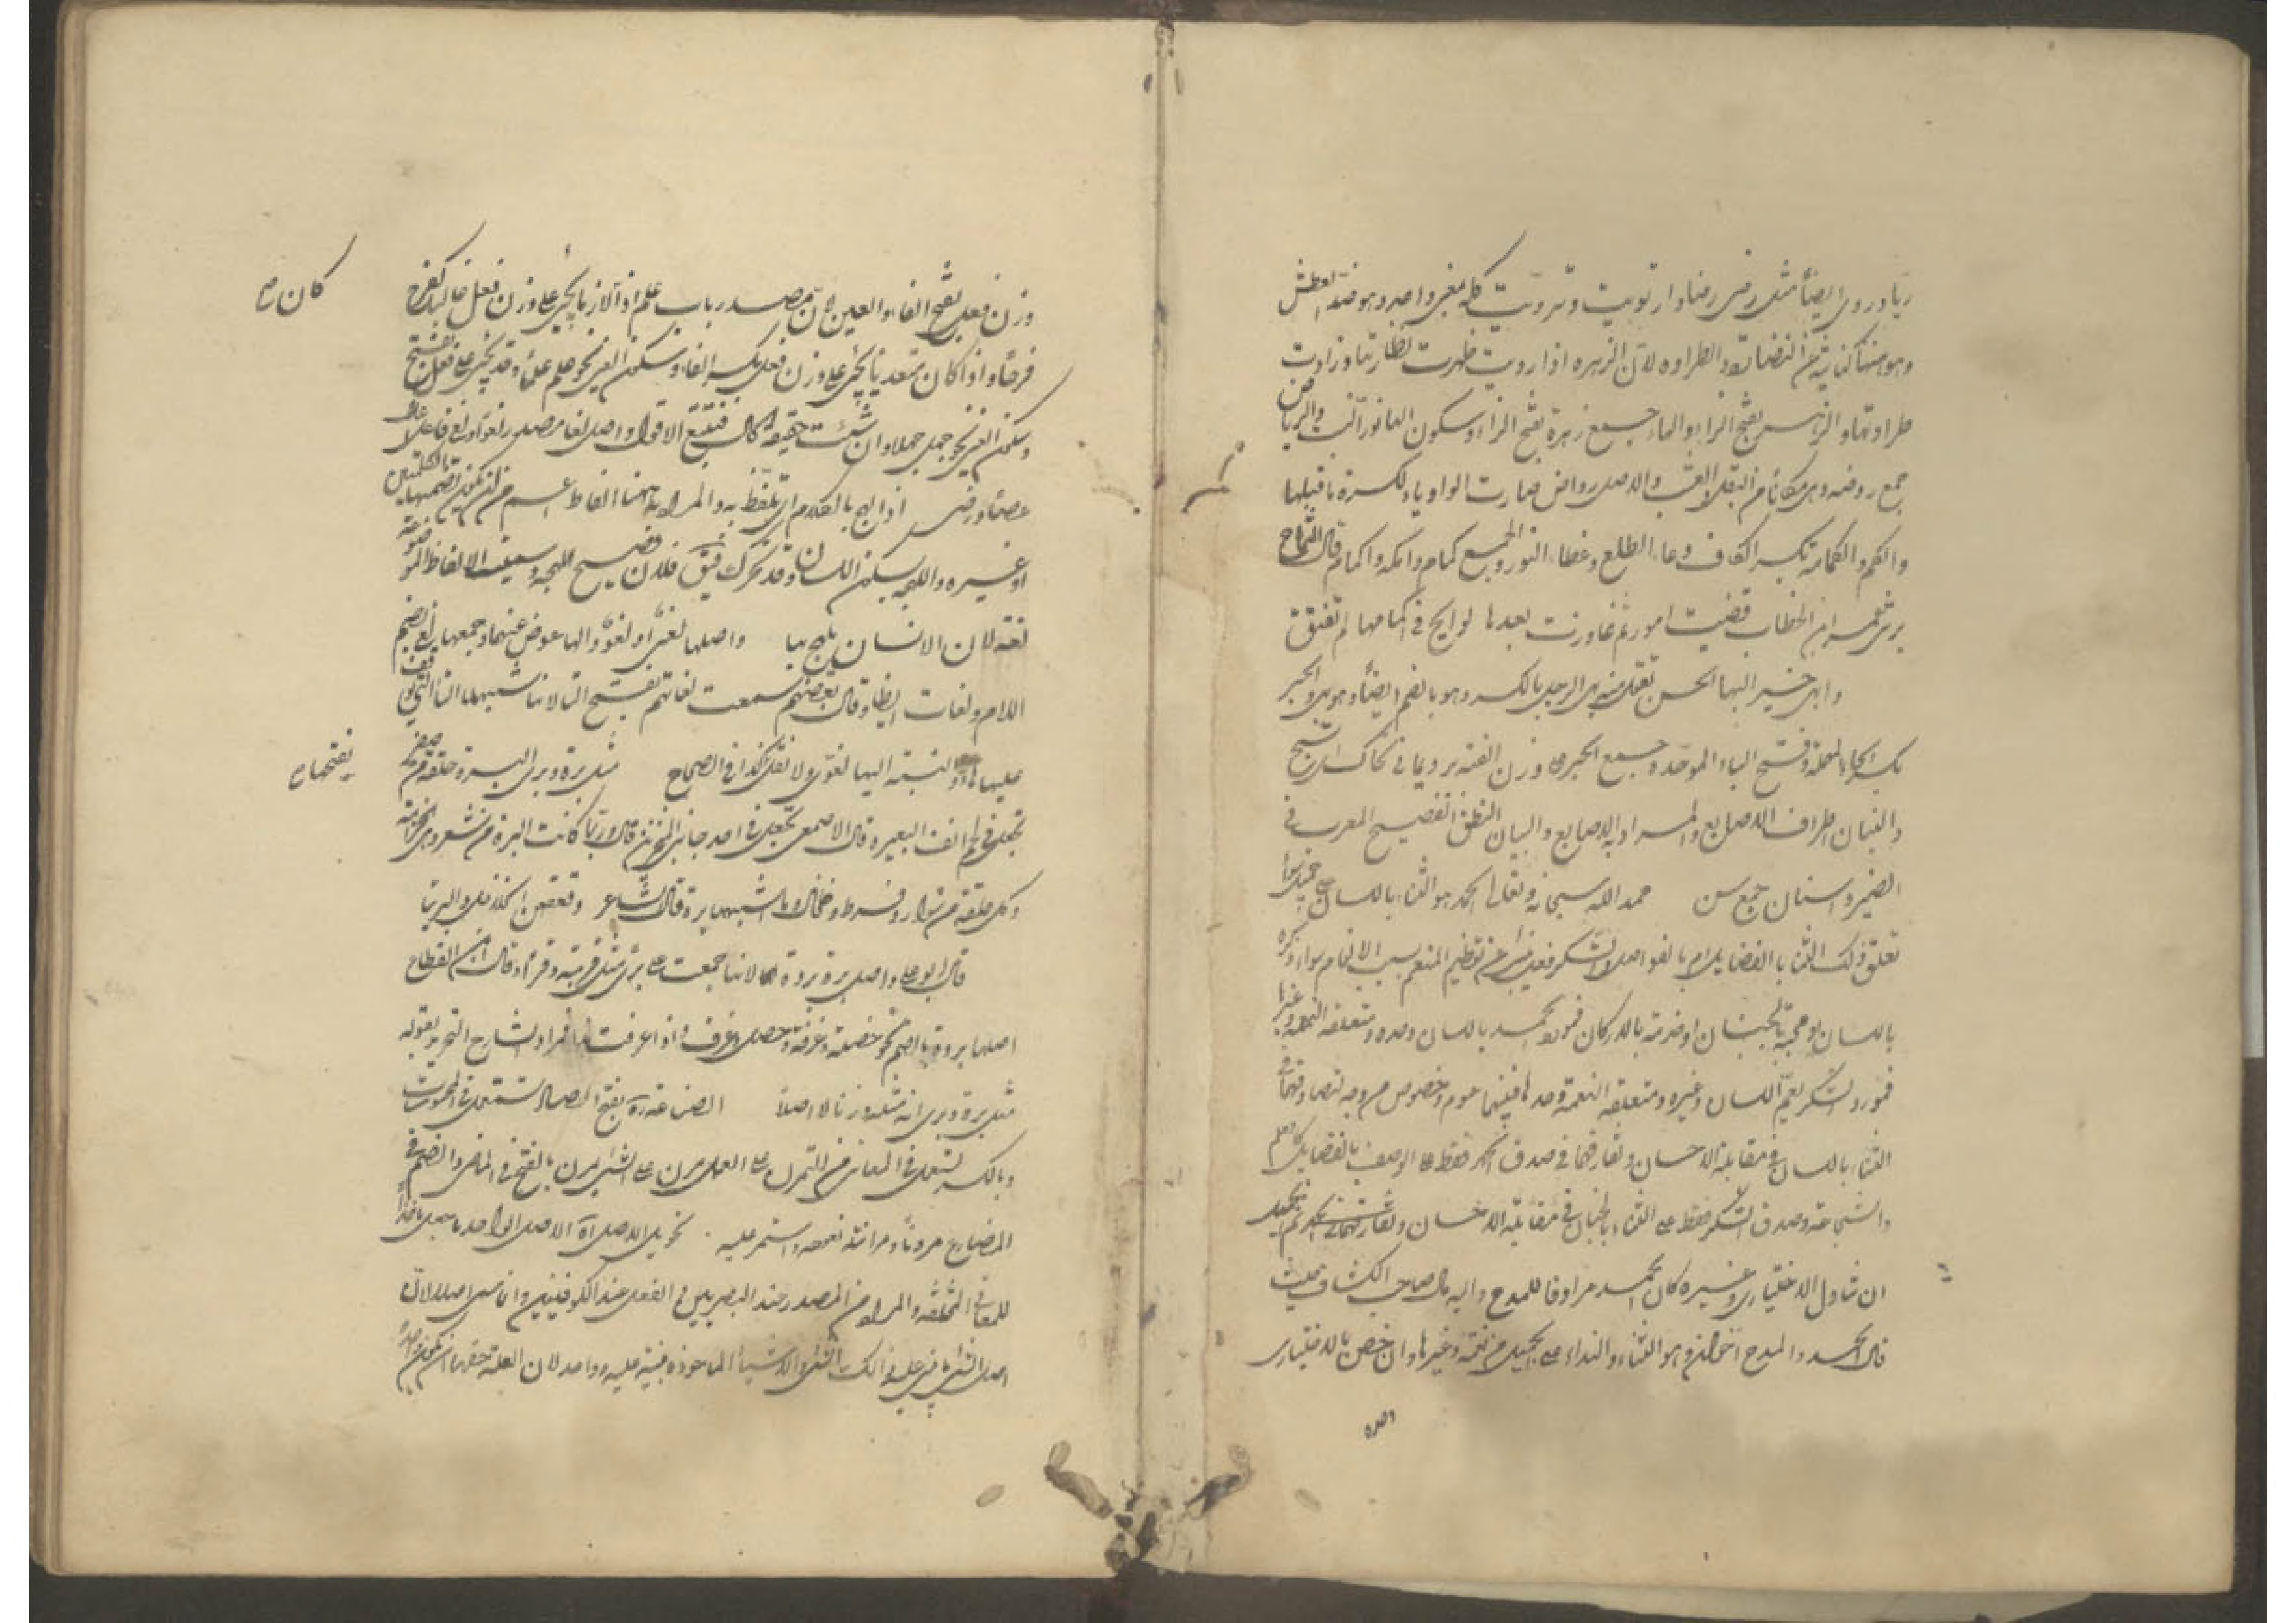 ريا وروى ايضا مثل رضى رضا وارتويت وترويت كله بمعنى واحد وهو ضد العطش
وهو منها كناية عن النضارة والطراوة لان الزهرة اذا رويت ظهرت نظارتها وزادت
طراوتها والزهر بفتح الزاء والهاء جمع زهرة بفتح الزاء وسكون الها نور النبت والرياض
جمع روضة وهى مكان من البقل والعشب والاصل رواض صارت الواو ياء لكسرة ما قبلها
والكم والكمامة بكسر الكاف وعاء الطلع وغطاء النور والجمع كمام واكمة واكمام قال الشماخ
يرثى عمر ابن الخطاب قضيت امورا ثم غادرت بعدها لوايح فى اكمامها لم تفتق
وابهى حبر البها الحسن تقول منه بهى الرجل بالكسر وهو بالضم ايضا وهو بهى والحبر
بكسر الحاء المهملة وفتح الباء الموحدة جمع الحبرة على وزن العنبة برد يمانى تحاك اى تنسج
والبنان اطراف الاصابع والمراد به الاصابع والبيان النطق الفصيح المعرب عما فى
الضمير واسنان جمع سن حمد الله سبحانه وتعالى الحمد هو الثناء باللسان على جميل سواء
تعلق ذلك الثناء بالفضايل ام بالفواضل والشكر فعل ينبئ عن تعظيم المنعم بسبب الانعام سواء ذكره
باللسان او محبة بالجنان او خدمة بالاركان فمورد الحمد باللسان وحده ومتعلقه النعمة وغيرها
فمورد الشكر يعم اللسان وغيره ومتعلقه النعمة وحدها فبينهما عموم وخصوص من وجه لتصادقهما فى
الثناء باللسان فى مقابلة الاحسان وتفارقهما فى صدق الحمد فقط على الوصف بالفضايل كالعلم
والشجاعة وصدق الشكر فقط على الثناء بالجنان فى مقابلة الاحسان ثم الجميل
ان تناول الاختيارى وغيره كان الحمد مرادفا للمدح واليه مال صاحب الكشاف حيث
قال الحمد والمدح اخوان وهو الثناء والنداء على الجميل من نعمة وغيرها وان خص بالاختيارى
وزن فعل بفتح الفاء والعين لان مصدر باب علم اذا لازما يجئ على وزن فعل غالبا كفرح
كان صح
فرحا واذا كان متعديا يجئ على وزن فعل بكسر الفاء وسكون العين نحو علم علما وقد يجئ على فعل بفتح
وسكون العين نحو جهل جهلا وان شئت حقيقة الحال فتتبع الاقوال واصل لغا مصدر لغو
عصا ورضى اذا لهج بالكلام اى تلفظ به والمراد به ههنا الفاظ اعم من ان تكون
او غيره واللهجة بسكون اللسان وقد تحرك فيق فلان فصيح اللهجة وسميت الالفاظ الموضوعة
لغة لان الانسان يلهج بها واصلها لغى او لغو والها عوض عنهما وجمعها لغى بضم
اللام ولغات ايضا وقال بعضهم سمعت لغاتهم بفتح التا لانها شبهها بالتا التى يوقف
عليها بالهاء والنسبة اليها لغوى ولا تقل كذا فى الصحاح مثل برة وبرى البرة حلقة من صفر
بفتحها صح
تجعل فى لحم انف البعير وقال الاصمعى تجعل فى احد جانبى المنخرين قال وربما كانت البرة من شعر وهى الخزامة
وكل حلقة من سوار وقرط وخلخال وما اشبهها برة قال الشاعر وقعقعن الخلاخل والبرينا
قال ابو على واصل برة بروة لانها جمعت على برى مثل قرية وقرى وقال ابن القطاع
اصلها بروة بالضم نحو خصلة وغرفة وخصل وغرف واذا عرفت هذا فمراد الشارح النحرير بقوله
مثل برة وبرى انه مثله وزنا لا اصلا الصناعة آه بفتح الصاد تستعمل فى المحسوسات
وبالكسر تستعمل فى المعانى من التمرن على العمل مرن على الشئ يمرن بالفتح فى الماضى والضم فى
المضارع مرونا ومرانة تعوده واستمر عليه تحويل الاصل آه الاصل الواحد
للمعانى المختلفة والمراد من المصدر عند البصريين والفعل عند الكوفيين وانما سمى اصلا لان
اصل الشئ ما يبنى عليه ذلك الشئ والاشياء الماخوذة مبنية عليه وواحد لان العلة